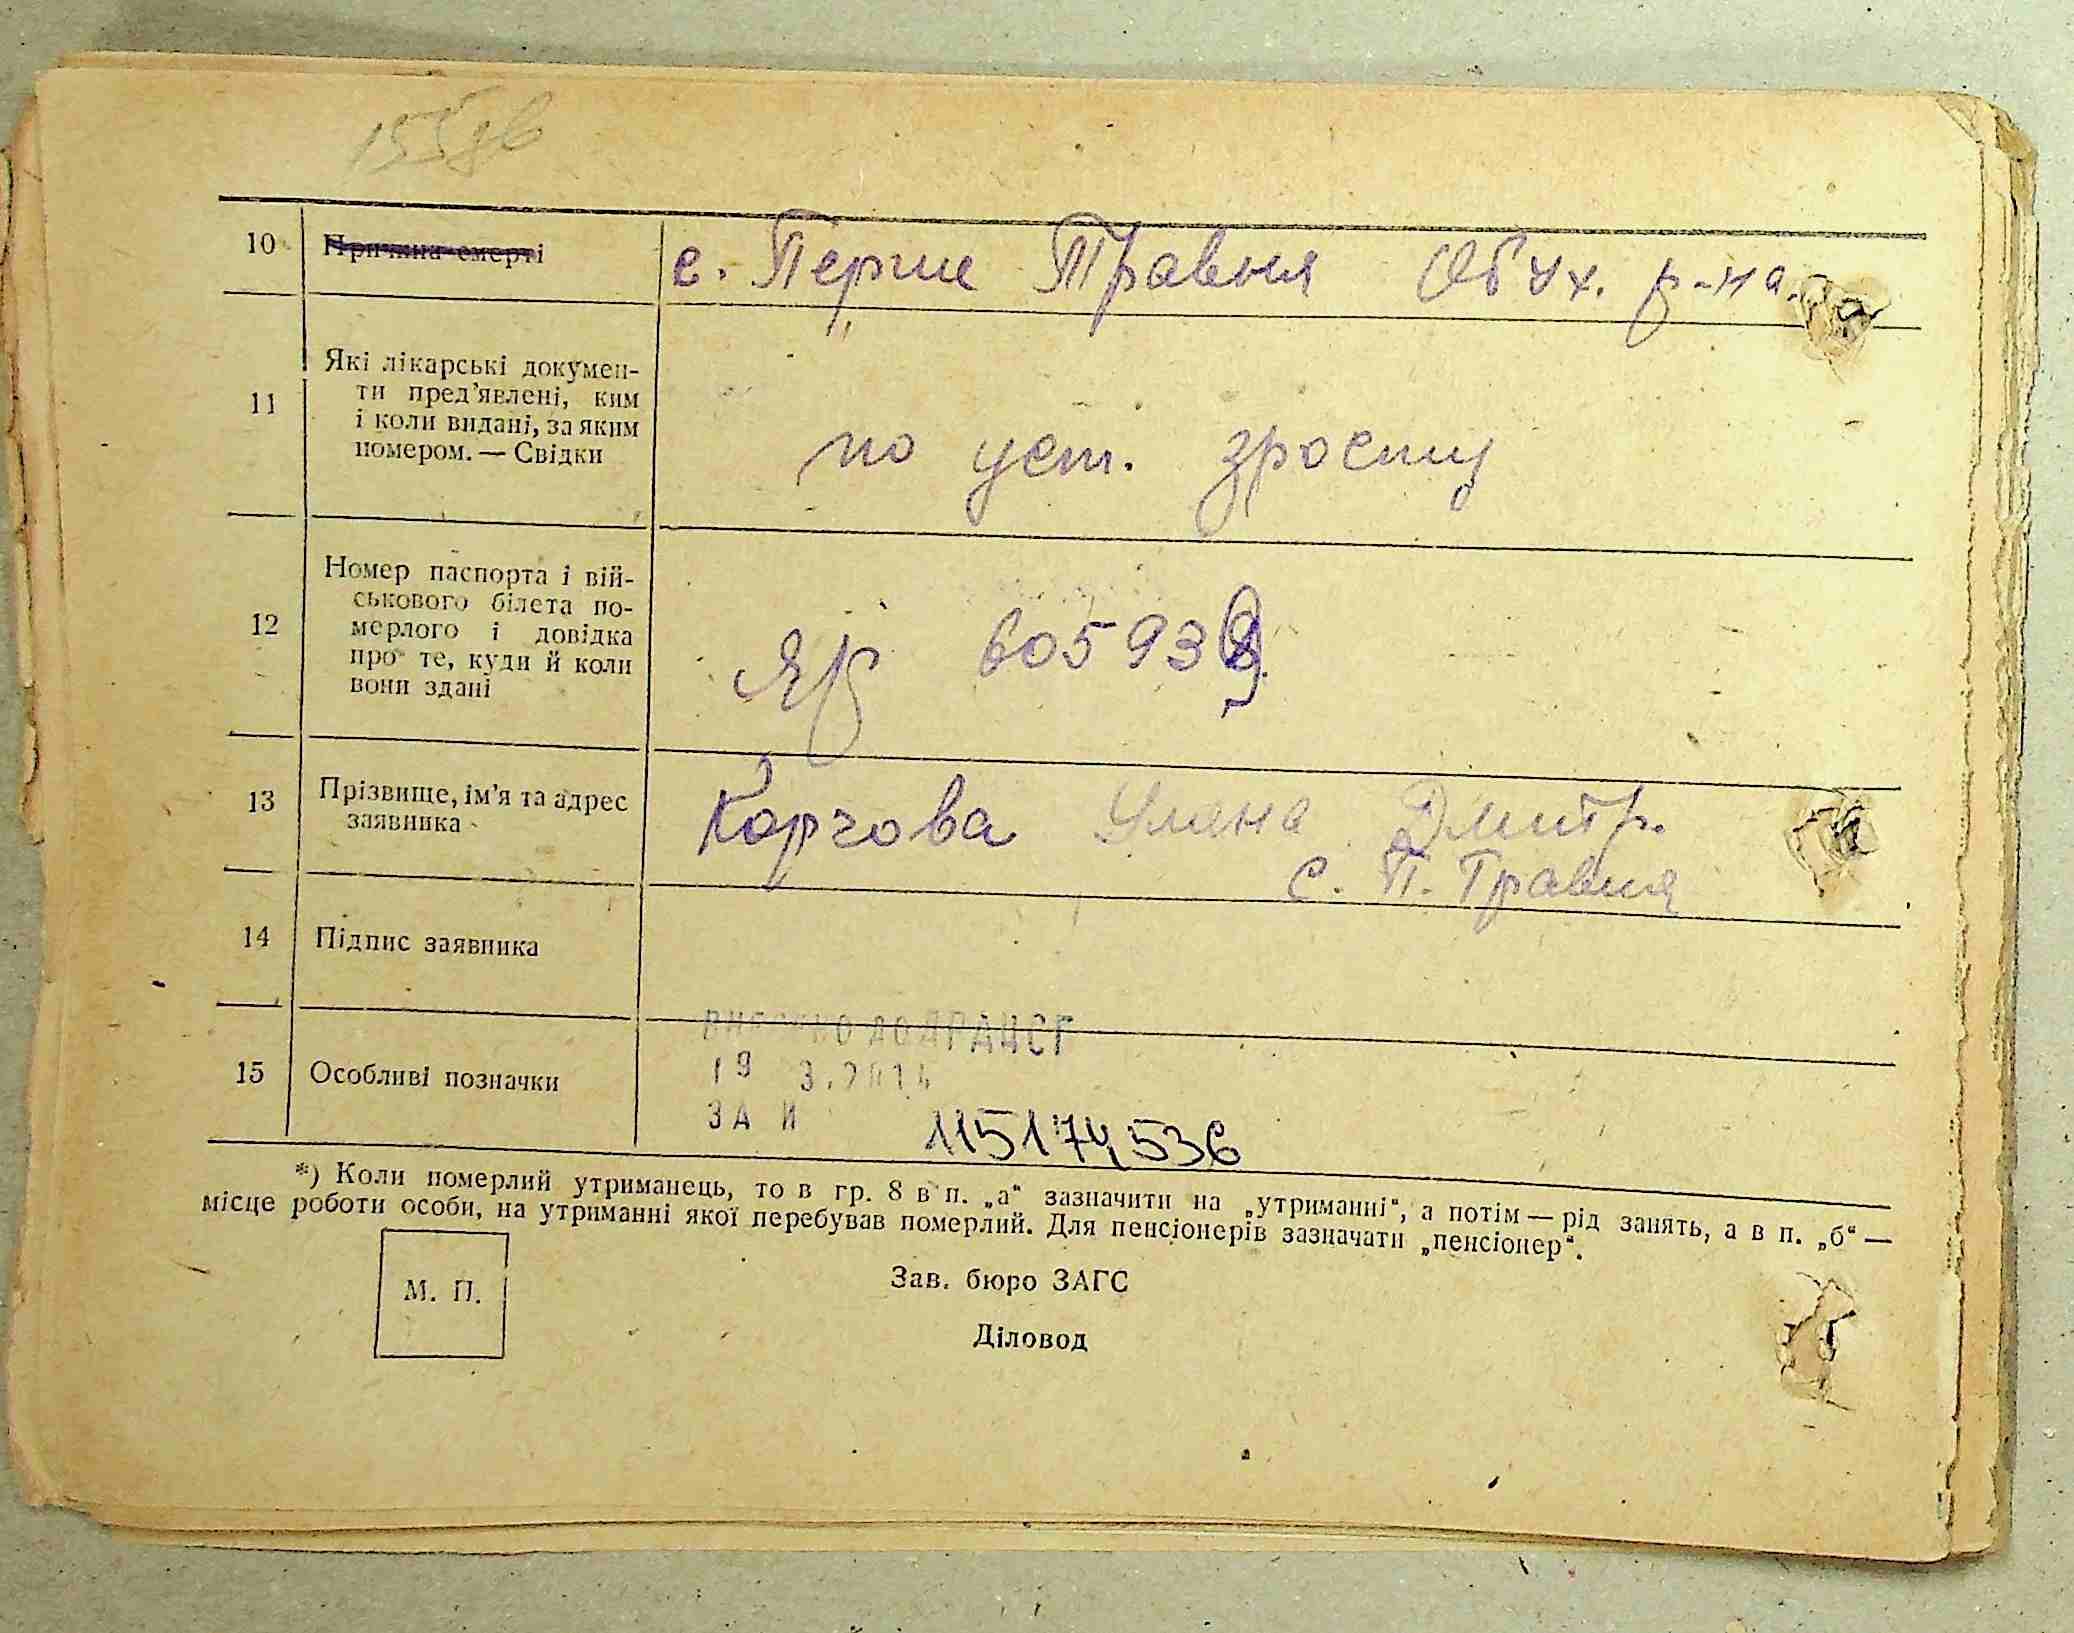 155зв
10 Причина смерті с. Перше Травня Обух. р-на.
11 Які лікарські докумен-
ти пред'явлені, ким
і коли видані, за яким
номером. — Свідки
по уст. зросту
12 Номер паспорта і вій-
ськового білета по-
мерлого і довідка
про те, куди й коли
вони здані
ЯР 605939
13 Прізвище, ім'я та адрес
заявника
Корчова Уляна Дмитр.
с. П. Травня
14 Підпис заявника
ВНЕСЕНО ДО ДРАЦСГ
15 Особливі позначки
19 3.2014
ЗА И 115174536
*) Коли померлий утриманець, то в гр. 8 в п. „а“ зазначити на „утриманні“, а потім — рід занять, а в п. „б“ —
місце роботи особи, на утриманні якої перебував померлий. Для пенсіонерів зазначати „пенсіонер“.
М. П.
Зав. бюро ЗАГС
Діловод